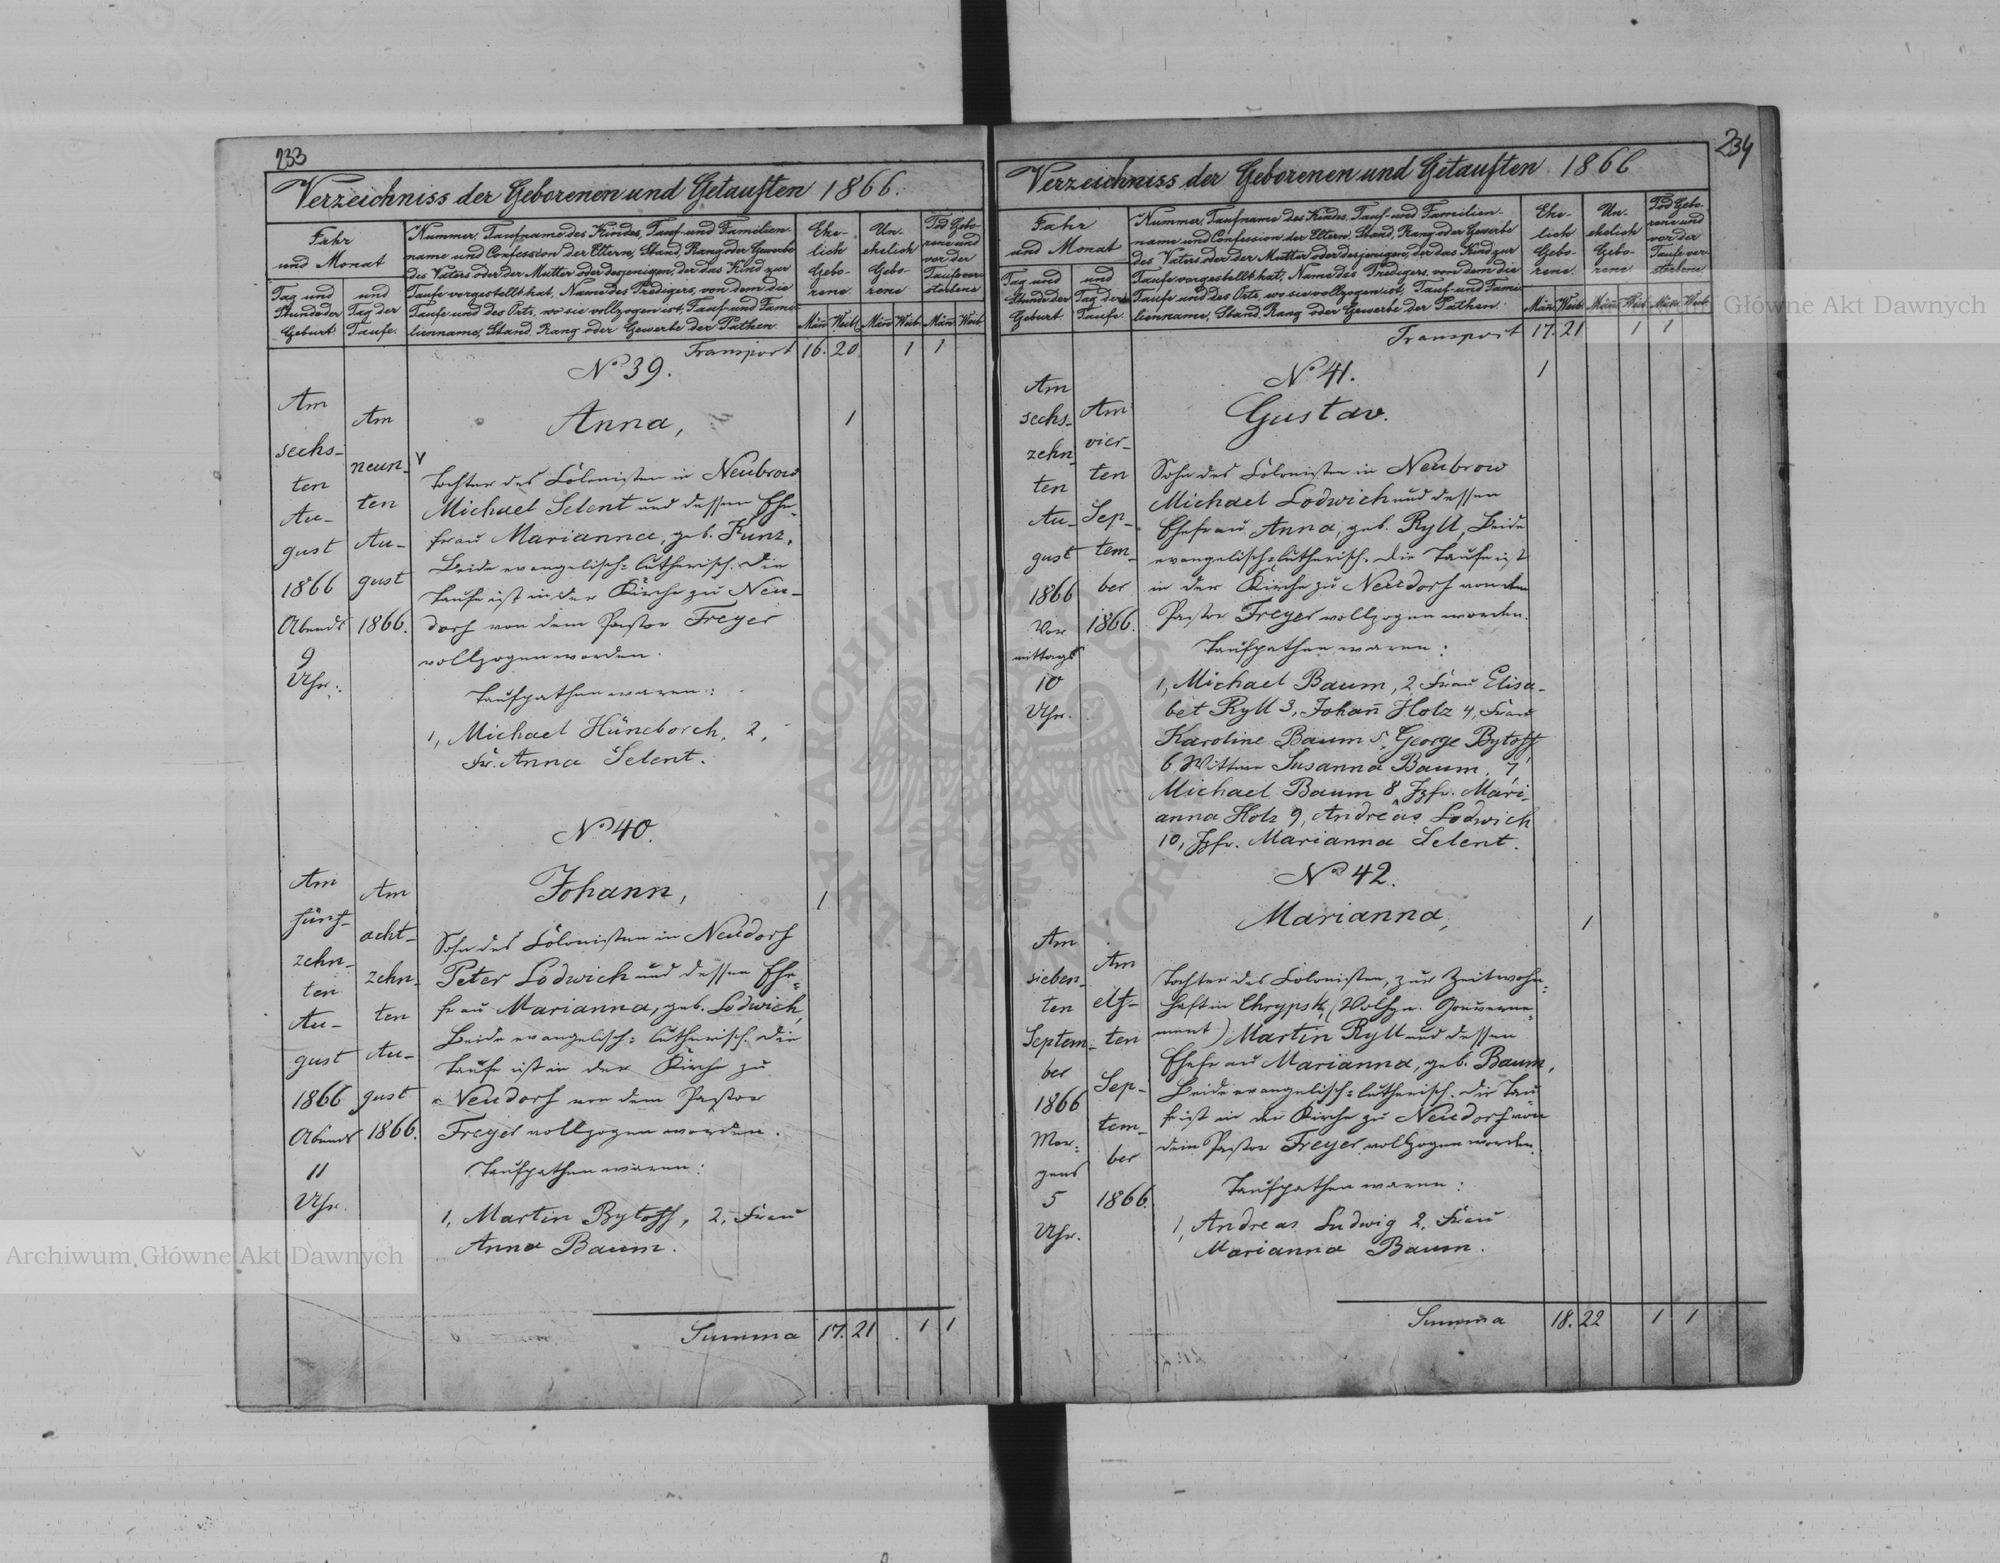 233
Verzeichniss der Geborenen und Getauften 1866.
Jahr
und Monat
Tag und
Stunde der
Geburt
und
Tag der
Taufe.
Nummer, Taufname des Kindes, Tauf- und Familien-
name und Confession der Eltern, Stand, Rang oder Gewerbe
des Vaters oder der Mutter oder desjenigen, der das Kind zur
Taufe vorgestellt hat, Name des Predigers, von dem die
Taufe und des Orts, wo sie vollzogen ist, Tauf- und Fami-
lienname, Stand, Rang oder Gewerbe der Pathen.
Ehe-
lich
Gebo-
rene.
Un-
ehelich
Gebo-
rene
Tod Gebo-
rene und
vor der
Taufe ver-
storbene
Män̄ Weib. Män̄ Weib. Män̄ Weib.
Transport 16. 20. 1 1
No 39.
Am
sechs-
ten
Au-
gust
1866
Abends
9
Uhr.
Am
neun-
ten
Au-
gust
1866.
Anna, 1
Tochter des Colonisten in Neubrow
Michael Selent und dessen Ehe-
frau Marianna, geb. Kunz,
Beide evangelisch-lutherisch. Die
Taufe ist in der Kirche zu Neu-
dorf von dem Pastor Freyer
vollzogen worden.
Taufpathen waren:
1, Michael Hüneborch, 2,
Fr. Anna Selent.
No 40.
Am
fünf-
zehn-
ten
Au-
gust
1866
Abends
11
Uhr.
Am
acht-
zehn-
ten
Au-
gust
1866.
Johann, 1
Sohn des Colonisten in Neudorf
Peter Lodwich und dessen Ehe-
frau Marianna, geb. Lodwich,
Beide evangelisch-lutherisch. Die
Taufe ist in der Kirche zu
Neudorf von dem Pastor
Freyer vollzogen worden.
Taufpathen waren:
1, Martin Bytoff, 2, Frau
Anna Baum.
Summa 17. 21 1 1
234
Verzeichniss der Geborenen und Getauften 1866
Jahr
und Monat
Tag und
Stunde der
Geburt.
und
Tag der
Taufe.
Nummer, Taufname des Kindes, Tauf- und Familien-
name und Confession der Eltern, Stand, Rang oder Gewerbe
des Vaters oder der Mutter oder desjenigen, der das Kind zur
Taufe vorgestellt hat, Name des Predigers, von dem die
Taufe und des Orts, wo sie vollzogen ist, Tauf- und Fami-
lienname, Stand, Rang oder Gewerbe der Pathen.
Ehe-
lich
Gebo-
rene.
Un-
ehelich
Gebo-
rene
Tod Gebo-
rene und
vor der
Taufe ver-
storbene.
Män̄ Weib. Män̄ Weib. Män̄ Weib.
Transport 17. 21 1 1
No 41.
Am
sechs-
zehn-
ten
Au-
gust
1866
Vor
mittags
10
Uhr.
Am
vier-
ten
Sep-
tem-
ber
1866.
Gustav. 1
Sohn des Colonisten in Neubrow
Michael Lodwich und dessen
Ehefrau Anna, geb. Ryll, Beide
evangelisch-lutherisch. Die Taufe ist
in der Kirche zu Neudorf von dem
Pastor Freyer vollzogen worden.
Taufpathen waren:
1, Michael Baum, 2, Frau Elisa-
bet Ryll 3, Johan̄ Holz 4, Frau
Karoline Baum 5, George Bytoff
6 Wittwe Susanna Baum, 7,
Michael Baum 8, Jgfr. Mari-
anna Holz 9, Andreas Lodwich
10, Jgfr. Marianna Selent.
No 42.
Am
sieben-
ten
Septem-
ber
1866
Mor-
gens
5
Uhr.
Am
elf-
ten
Sep-
tem-
ber
1866.
Marianna, 1
Tochter des Colonisten, zur Zeit wohn-
haft in Chrypsk, (Volhyn. Gouverne-
ment) Martin Ryll und dessen
Ehefrau Marianna, geb. Baum,
Beide evangelisch-lutherisch. Die Tau-
fe ist in der Kirche zu Neudorf von
dem Pastor Freyer vollzogen worden.
Taufpathen waren:
1, Andreas Ludwig 2, Frau
Marianna Baum.
Summa 18. 22 1 1
Główne Akt Dawnych
Archiwum Główne Akt Dawnych
ARCHIWUM GŁÓWNE AKT DAWNYCH